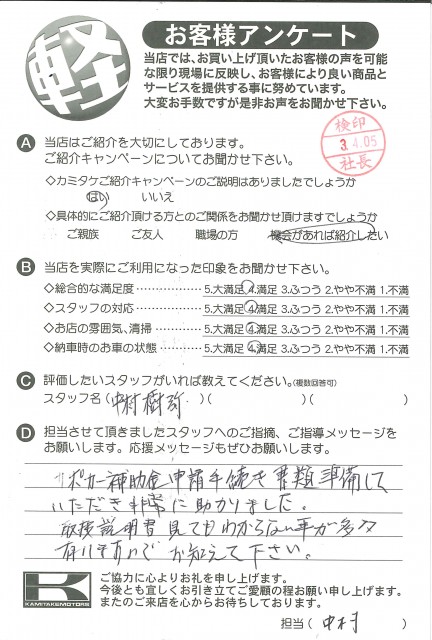 軽
お客様アンケート
当店では、お買い上げ頂いたお客様の声を可能
な限り現場に反映し、お客様により良い商品と
サービスを提供する事に努めています。
大変お手数ですが是非お声をお聞かせ下さい。
検印
3.4.05
社長
A 当店はご紹介を大切にしております。
ご紹介キャンペーンについてお聞かせ下さい。
◇カミタケご紹介キャンペーンのご説明はありましたでしょうか
はい いいえ
◇具体的にご紹介頂ける方とのご関係をお聞かせ頂けますでしょうか
ご親族 ご友人 職場の方 機会があれば紹介したい
B 当店を実際にご利用になった印象をお聞かせ下さい。
◇総合的な満足度 5.大満足 4.満足 3.ふつう 2.やや不満 1.不満
◇スタッフの対応 5.大満足 4.満足 3.ふつう 2.やや不満 1.不満
◇お店の雰囲気、清掃 5.大満足 4.満足 3.ふつう 2.やや不満 1.不満
◇納車時のお車の状態 5.大満足 4.満足 3.ふつう 2.やや不満 1.不満
C 評価したいスタッフがいれば教えてください。(複数回答可)
スタッフ名 ( 中村樹弥 ) ( ) ( )
D 担当させて頂きましたスタッフへのご指摘、ご指導メッセージを
お願いします。応援メッセージもぜひお願いします。
サポカー補助金申請手続き書類準備して
いただき非常に助かりました。
取扱説明書見てもわからない事が多々
有りますので お教えて下さい。
KAMITAKEMOTORS
ご協力に心よりお礼を申し上げます。
今後とも宜しくお引き立てご愛顧の程お願い申し上げます。
またのご来店を心からお待ちしております。
担当 ( 中村 )